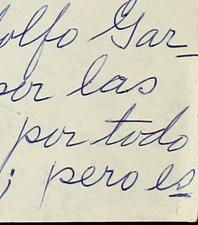 olfo Gar-
por las
por todo
; pero es